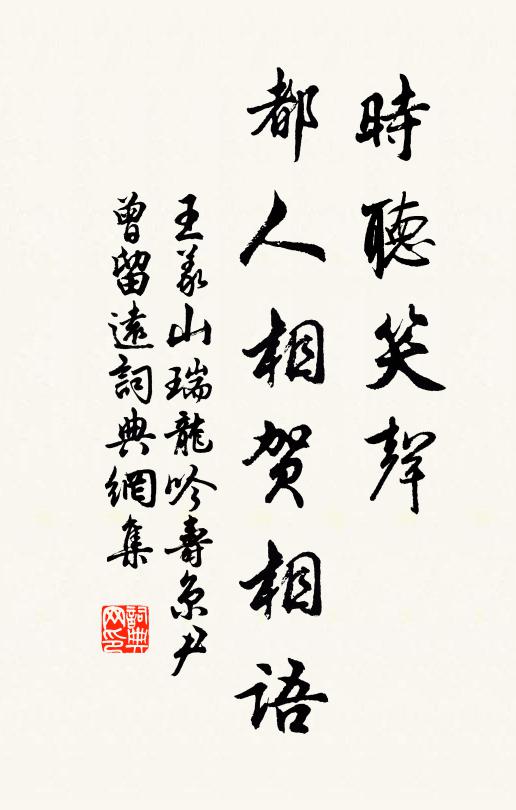 時聽笑聲
都人相賀相語
王義山瑞龍吟壽京尹
曾留遠詞典網集
詞典网印